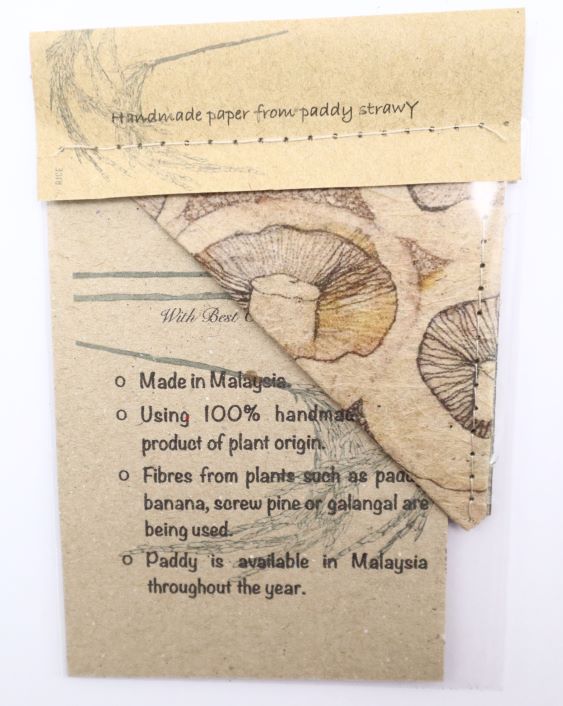 Handmade paper from paddy strawY
RICE
With Best
o Made in Malaysia.
o Using 100%
product of plant origin.
o Fibres from plants such as
banana, screw pine or galangal are
being used.
o Paddy is available in Malaysia
throughout the year.